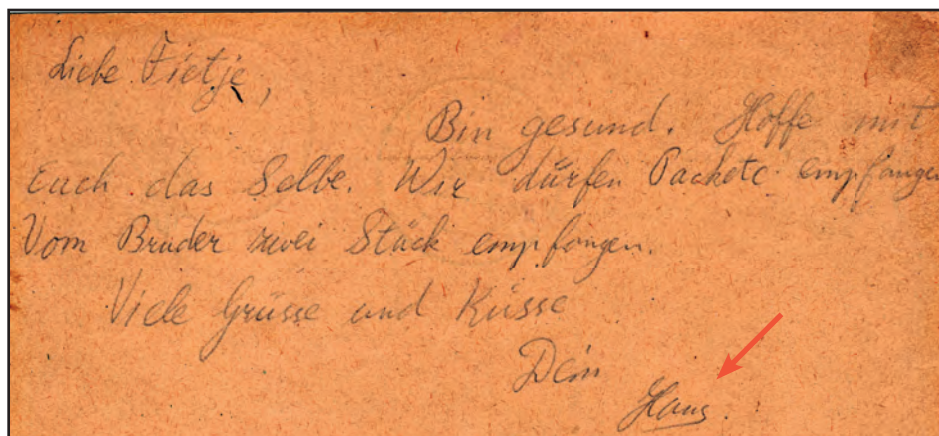 Liebe Fietje,
Bin gesund. Hoffe mit
Euch das Selbe. Wir dürfen Packete empfangen
Vom Bruder zwei Stück empfangen.
Viele Grüsse und Küsse
Dein
Hans.